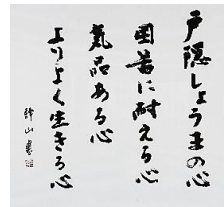 戸隠しょうまの心
困苦に耐える心
気品ある心
よりよく生きる心